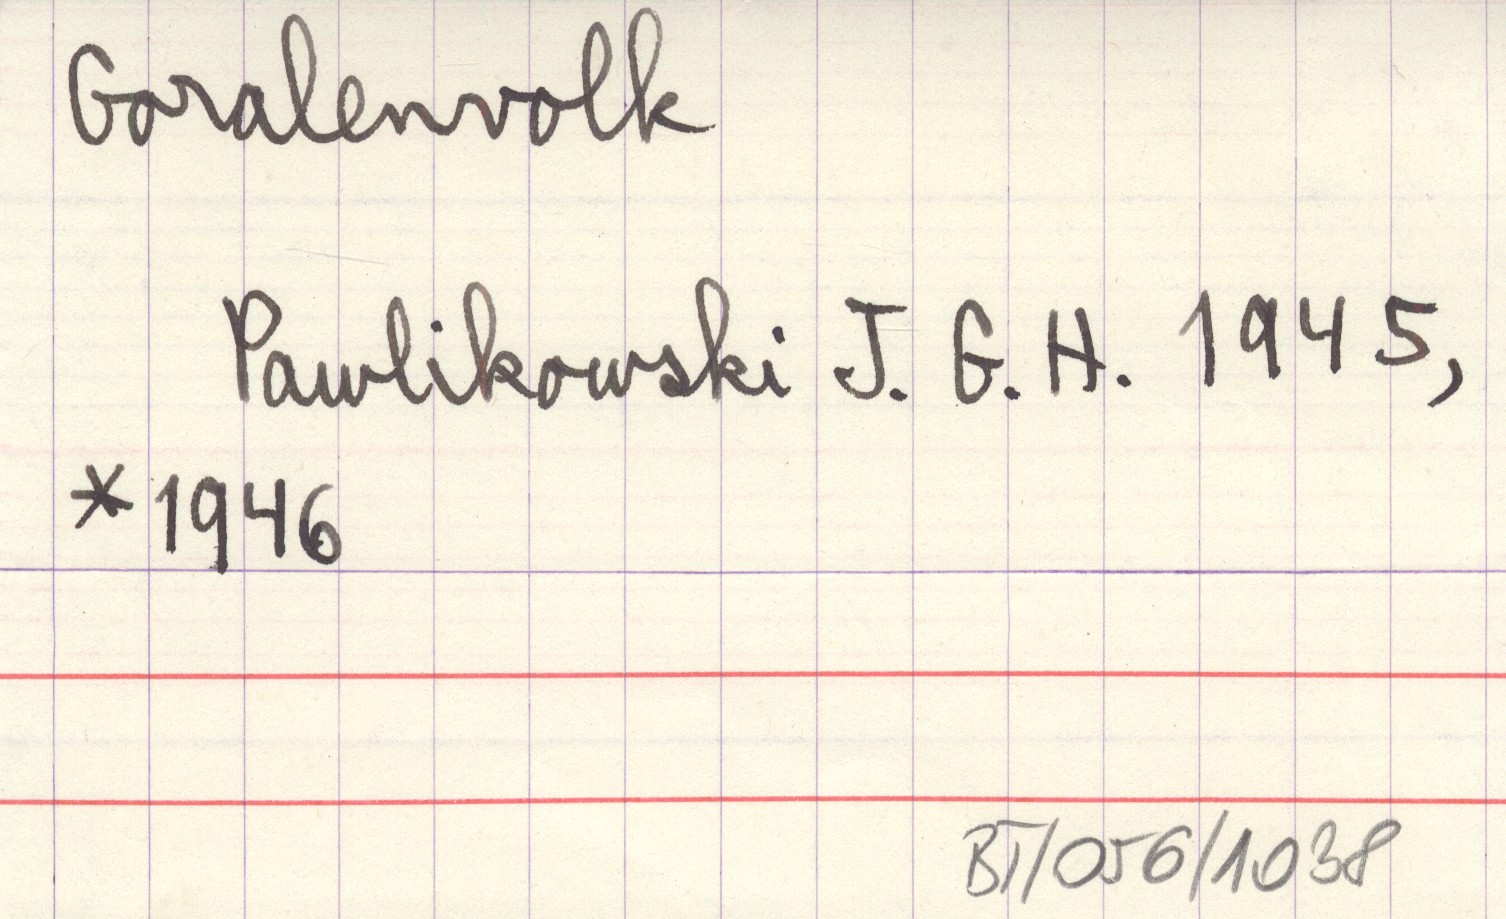 Goralenvolk
Pawlikowski J. G. H. 1945,
*1946
BT/056/1038